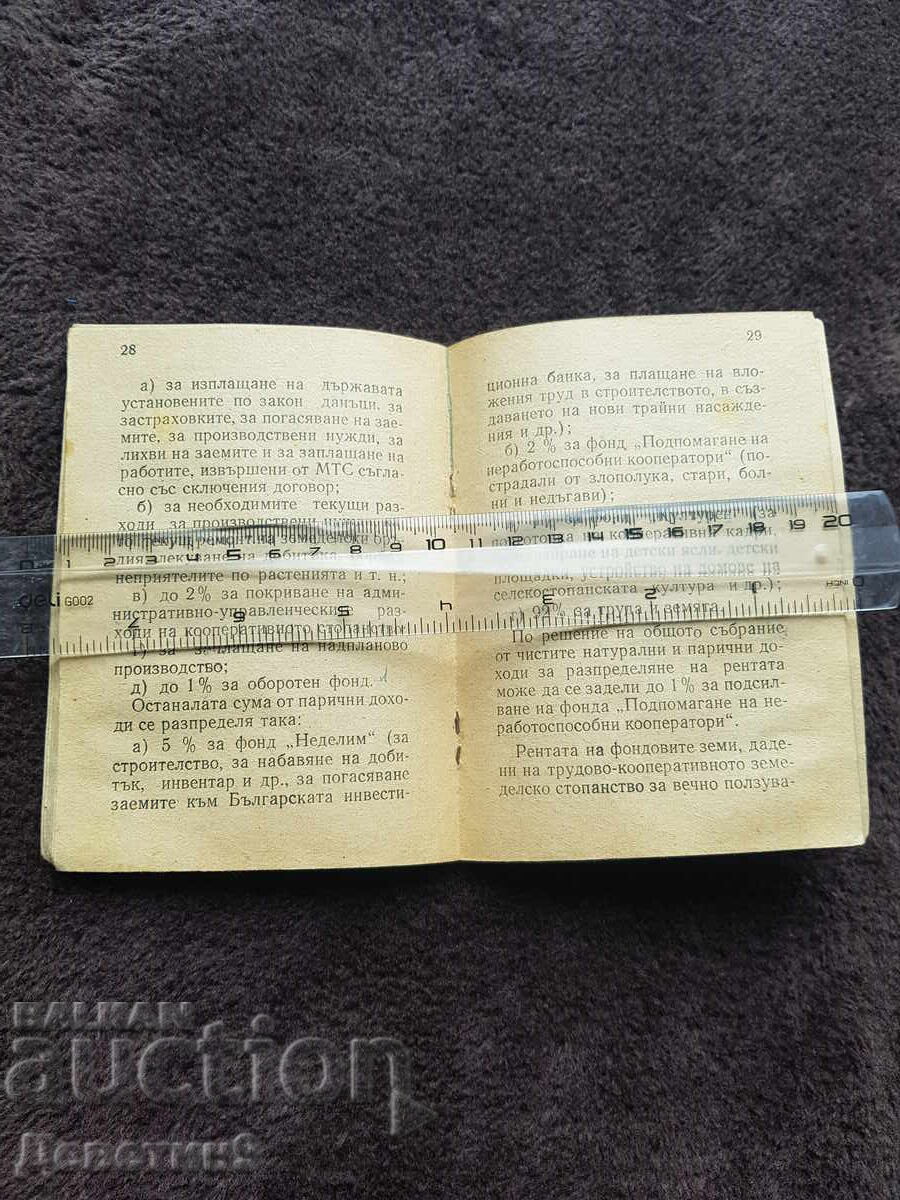 28
а) за изплащане на държавата
установените по закон данъци, за
застраховките, за погасяване на зае-
мите, за производствени нужди, за
лихви на заемите и за заплащане на
работите, извършени от МТС съгла-
сно със сключения договор;
б) за необходимите текущи раз-
ходи за производствени
по текущ ремонт на земеделски ору-
дия, лекуване на добитъка,
неприятелите по растенията и т. н.;
в) до 2% за покриване на адми-
нистративно-управленческите раз-
ходи на кооперативното стопанство;
г) за заплащане на надпланово
производство;
д) до 1% за оборотен фонд.
Останалата сума от парични дохо-
ди се разпределя така:
а) 5 % за фонд „Неделим“ (за
строителство, за набавяне на доби-
тък, инвентар и др., за погасяване
заемите към Българската инвести-
29
ционна банка, за плащане на вло-
жения труд в строителството, в създ-
даването на нови трайни насажде-
ния и др.);
б) 2 % за фонд „Подпомагане на
неработоспособни кооператори“ (по-
страдали от злополука, стари, бол-
ни и недъгави);
(за
на кооперативни кадри,
на детски ясли, детски
площадки, устройство на домове на
селскостопанската култура и др.);
г) 92% за труда и земята.
По решение на общото събрание
от чистите натурални и парични до-
ходи за разпределяне на рентата
може да се задели до 1% за подсил-
ване на фонда „Подпомагане на не-
работоспособни кооператори“.
Рентата на фондовите земи, даде-
ни на трудово-кооперативното земе-
делско стопанство за вечно ползува-
1 2 3 4 5 6 7 8 9 10 11 12 13 14 15 16 17 18 19 20
deli G002
INCH
BALKAN
auction
Деветин9